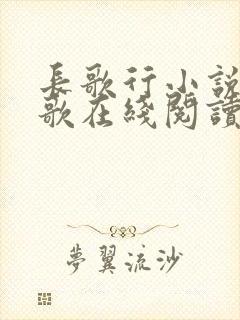 長歌行小說
歌在綫閱讀
夢翼流沙